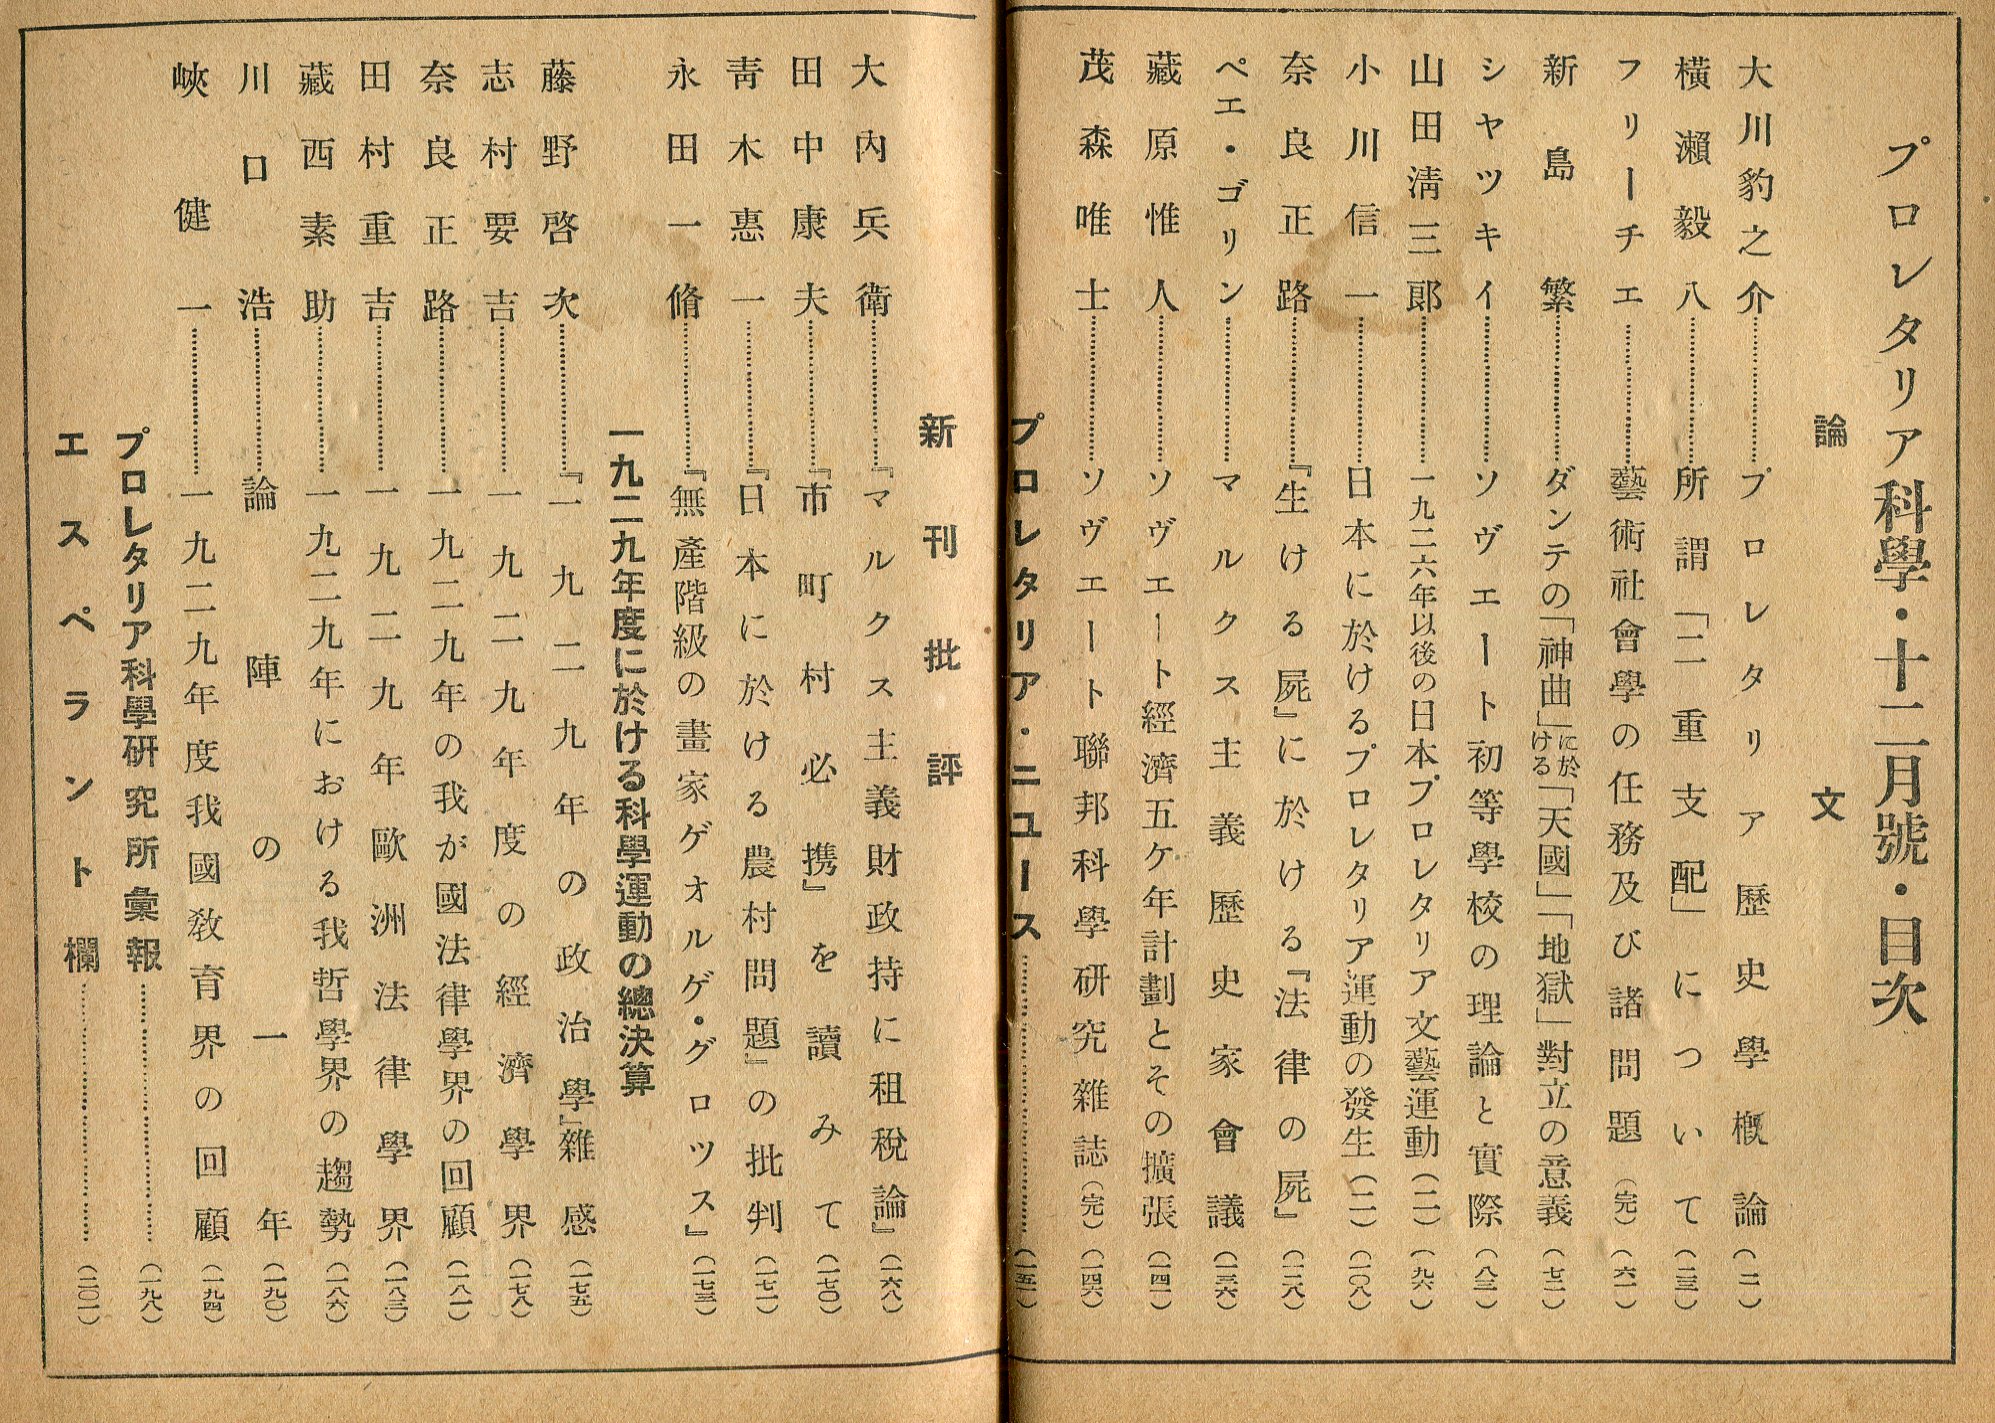 プロレタリア科學・十二月號・目次
論文
大川豹之介…………プロレタリア歷史學槪論（二）
橫瀨毅八…………所謂「二重支配」について（三三）
フリーチエ…………藝術社會學の任務及び諸問題（完）（六一）
新島繁…………ダンテの「神曲」に於ける「天國」「地獄」對立の意義（七二）
シヤツキイ…………ソヴエート初等學校の理論と實際（八三）
山田淸三郞…………一九二六年以後の日本プロレタリア文藝運動（二）（九六）
小川信一…………日本に於けるプロレタリア運動の發生（二）（一〇八）
奈良正路…………『生ける屍』に於ける『法律の屍』（一二八）
ペエ・ゴリン…………マルクス主義歷史家會議（一三六）
藏原惟人…………ソヴエート經濟五ケ年計劃とその擴張（一四一）
茂森唯士…………ソヴエート聯邦科學硏究雜誌（完）（一四六）
プロレタリア・ニユース…………（一五一）
新刊批評
大內兵衛…………『マルクス主義財政持に租稅論』（一六八）
田中康夫…………『市町村必携』を讀みて（一七〇）
靑木惠一…………『日本に於ける農村問題』の批判（一七一）
永田一脩…………『無產階級の畫家ゲオルゲ・グロツス』（一七三）
一九二九年度に於ける科學運動の總決算
藤野啓次…………『一九二九年の政治學』雜感（一七五）
志村要吉…………一九二九年度の經濟學界（一七八）
奈良正路…………一九二九年の我が國法律學界の回顧（一八一）
田村重吉…………一九二九年歐洲法律學界（一八三）
藏西素助…………一九二九年における我哲學界の趨勢（一八六）
川口浩…………論陣の一年（一九〇）
峽健一…………一九二九年度我國敎育界の回顧（一九四）
プロレタリア科學硏究所彙報…………（一九八）
エスペラント欄…………（二〇一）